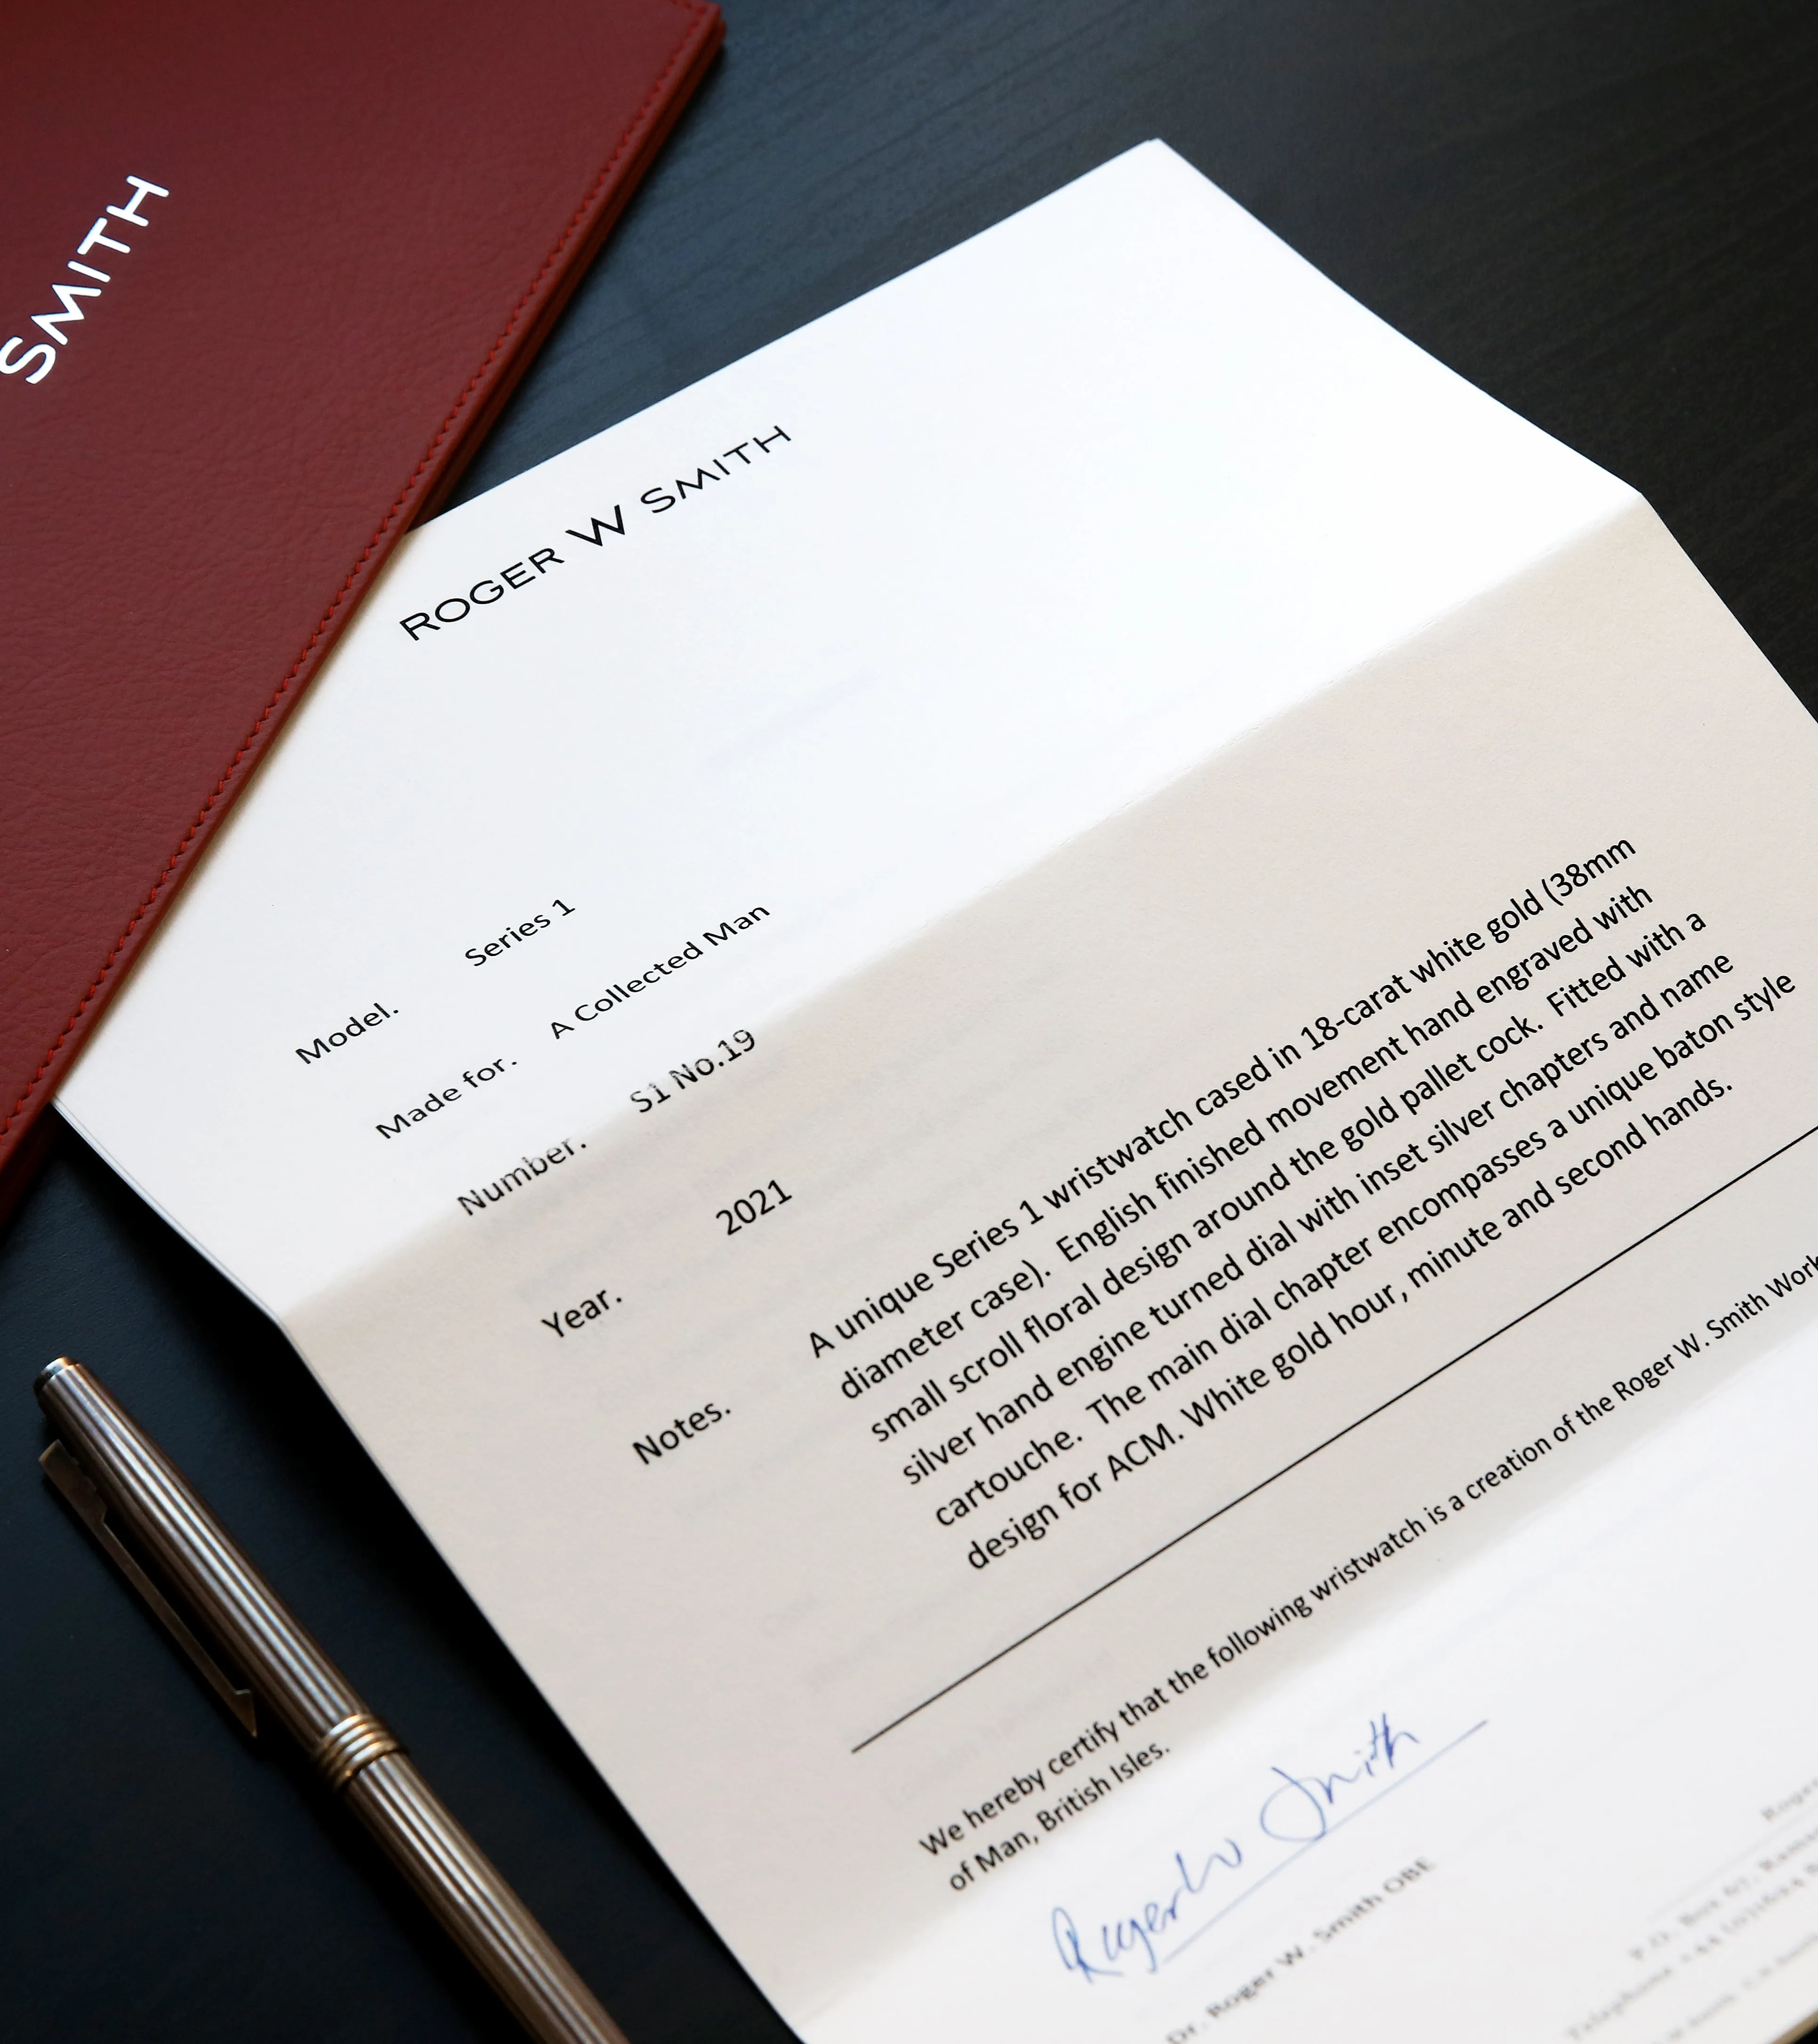 SMITH
ROGER W SMITH
Model. Series 1
Made for. A Collected Man
Number. S1 No.19
Year. 2021
Notes. A unique Series 1 wristwatch cased in 18-carat white gold (38mm
diameter case). English finished movement hand engraved with
small scroll floral design around the gold pallet cock. Fitted with a
silver hand engine turned dial with inset silver chapters and name
cartouche. The main dial chapter encompasses a unique baton style
design for ACM. White gold hour, minute and second hands.
We hereby certify that the following wristwatch is a creation of the Roger W. Smith Work
of Man, British Isles.
Roger W Smith
Dr. Roger W. Smith OBE
Roger
P.O. Box
Telephone +44